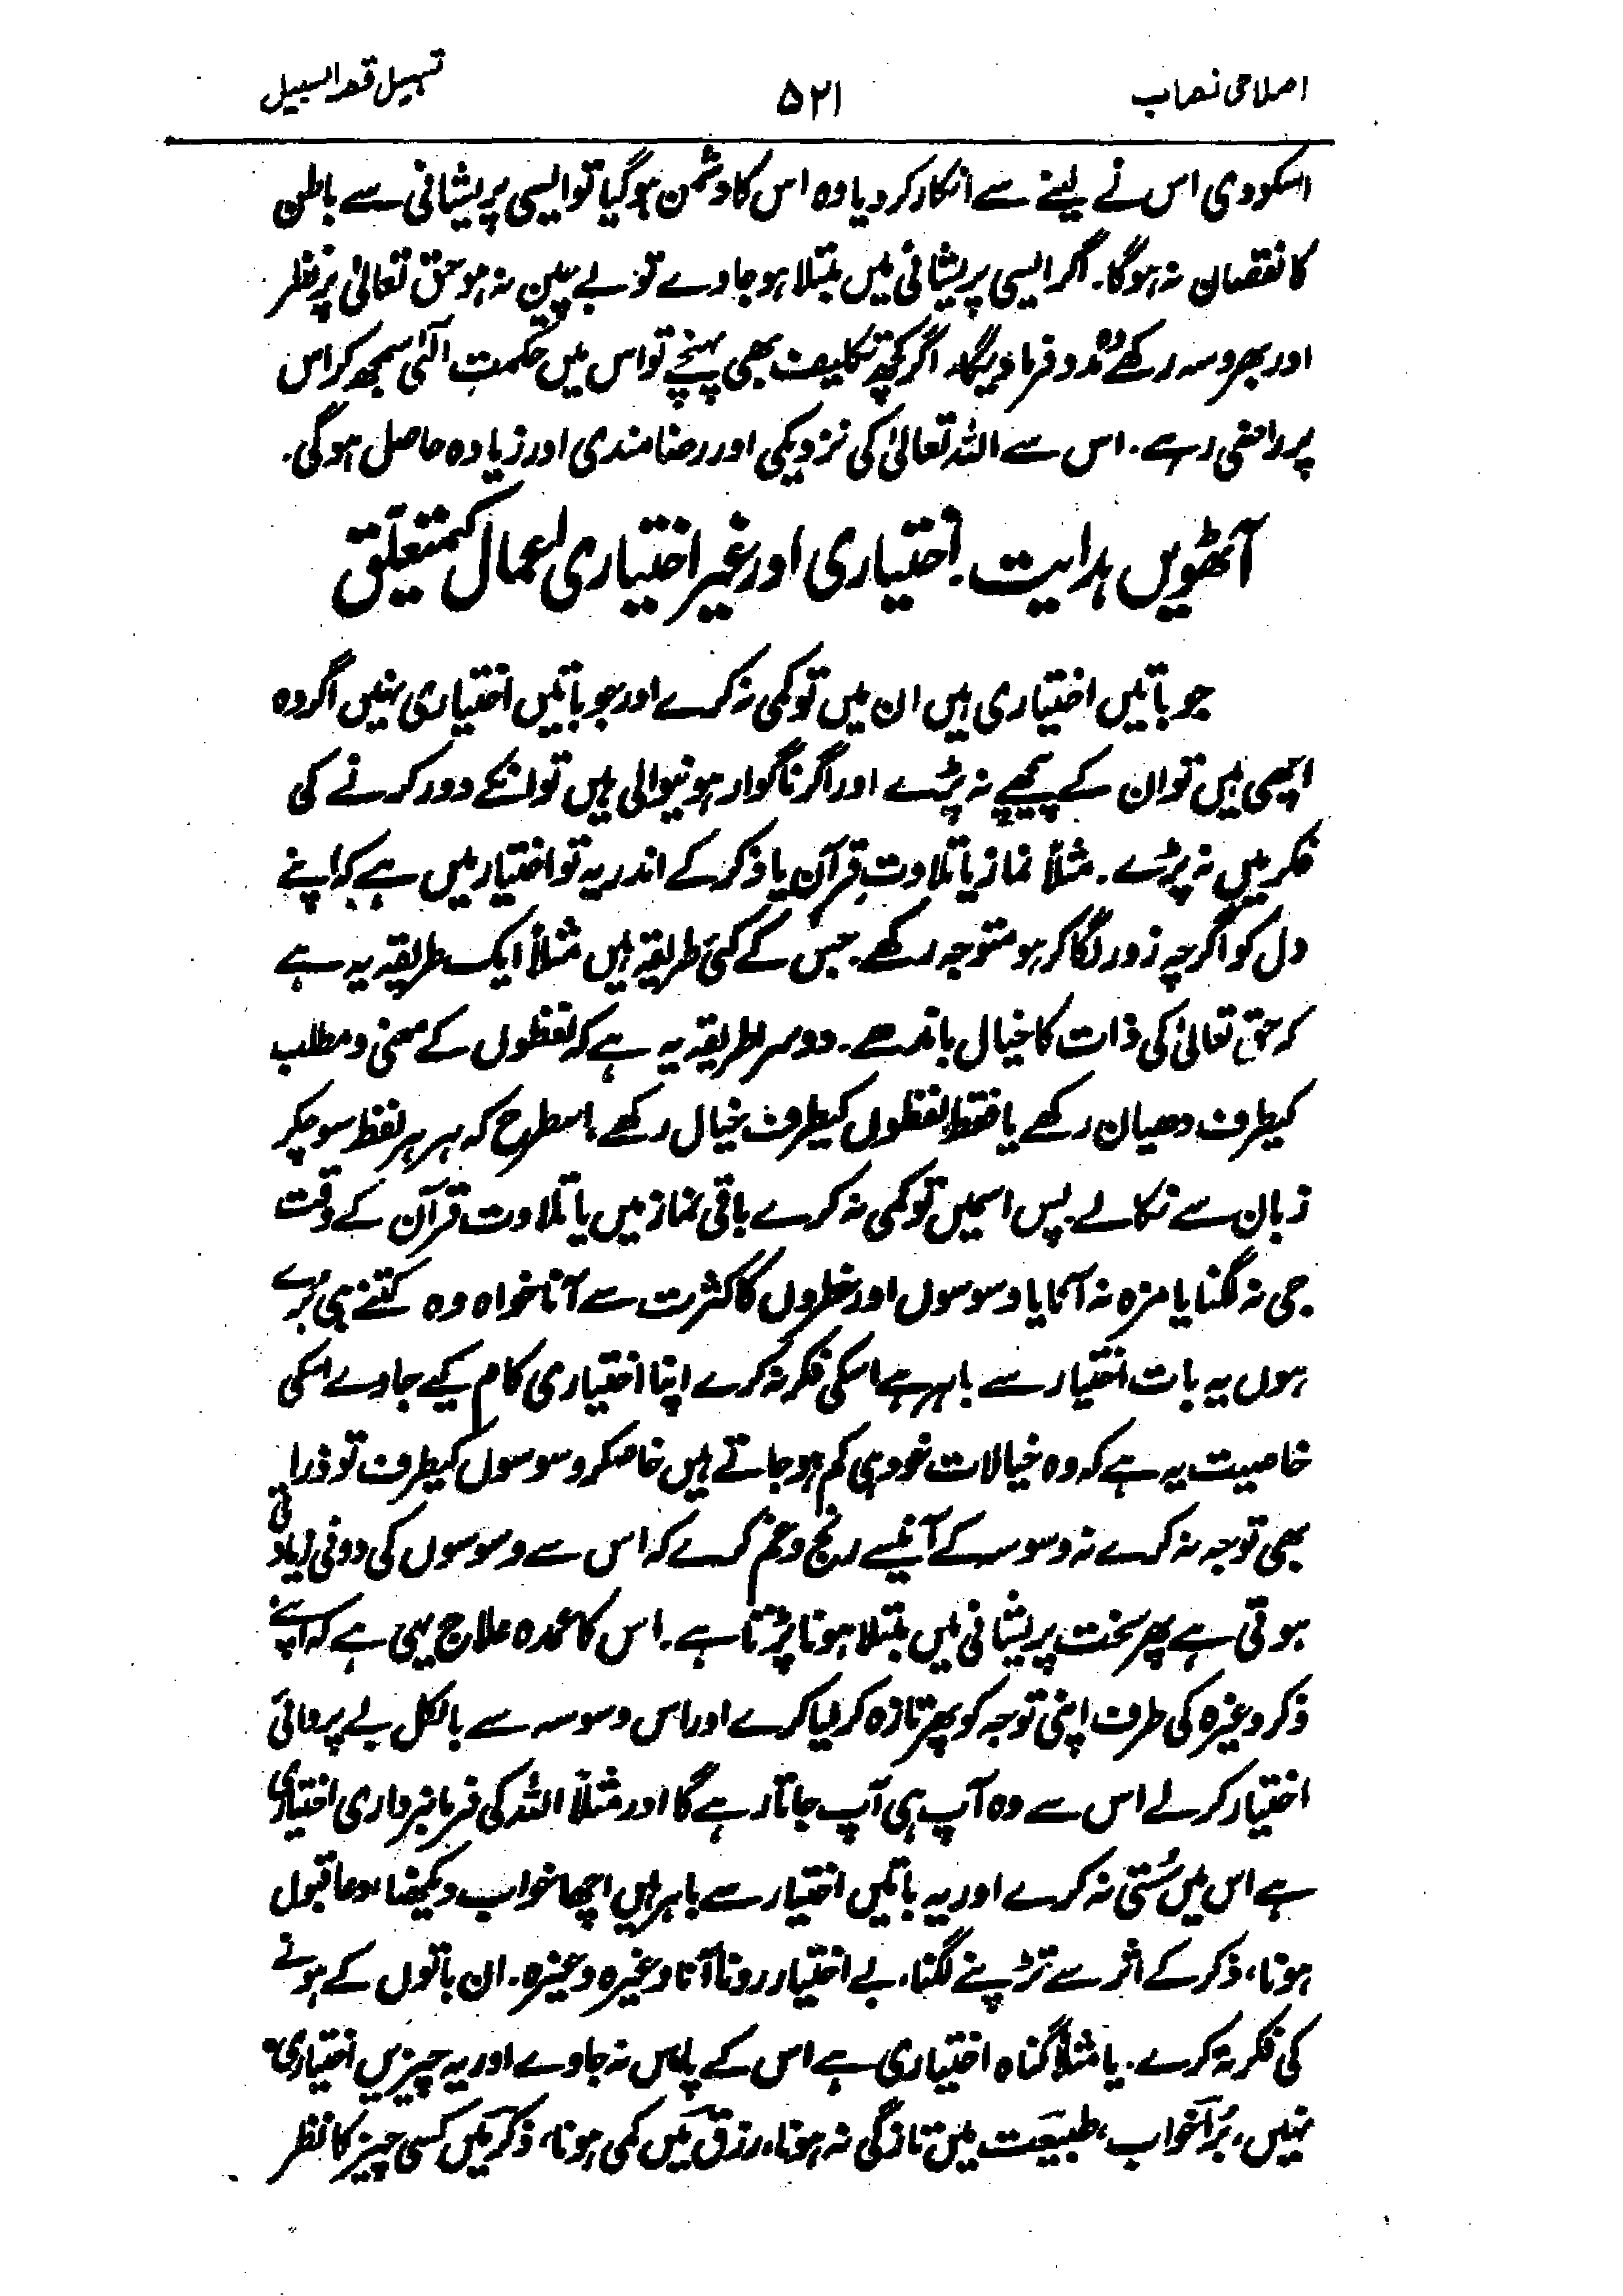 اصلاحی نصاب ۵۲۱ تسہیل قصد السبیل
اسکو دی اس نے لینے سے انکار کر دیا وہ اس کا دشمن ہو گیا تو ایسی پریشانی سے باطن
کا نقصان نہ ہوگا. اگر ایسی پریشانی میں مبتلا ہو جاوے تو بے چین نہ ہو حق تعالیٰ پر نظر
اور بھروسہ رکھے وہ مدد فرماویگا. اگر کچھ تکلیف بھی پہنچے تو اس میں حکمتِ الٰہی سمجھ کر اس
پر راضی رہے. اس سے اللہ تعالیٰ کی نزدیکی اور رضامندی اور زیادہ حاصل ہوگی.
آٹھویں ہدایت. اختیاری اور غیر اختیاری اعمال کے متعلق
جو باتیں اختیاری ہیں ان میں تو کمی نہ کرے اور جو باتیں اختیاری نہیں اگر وہ
اچھی ہیں تو ان کے پیچھے نہ پڑے اور اگر ناگوار ہونیوالی ہیں تو انکے دور کرنے کی
فکر میں نہ پڑے. مثلاً نماز یا تلاوتِ قرآن یا ذکر کے اندر یہ تو اختیار میں ہے کہ اپنے
دل کو اگرچہ زور لگا کر ہو متوجہ رکھے. جس کے کئی طریقہ ہیں مثلاً ایک طریقہ یہ ہے
کہ حق تعالیٰ کی ذات کا خیال باندھے. دوسرا طریقہ یہ ہے کہ لفظوں کے معنی و مطلب
کیطرف دھیان رکھے یا فقط لفظوں کیطرف خیال رکھے. اسطرح کہ ہر ہر لفظ سوچکر
زبان سے نکالے. پس اسمیں تو کمی نہ کرے باقی نماز میں یا تلاوت قرآن کے وقت
جی نہ لگنا یا مزہ نہ آنا یا وسوسوں اور خطروں کا کثرت سے آنا خواہ وہ کتنے ہی بُرے
ہوں یہ بات اختیار سے باہر ہے اسکی فکر نہ کرے اپنا اختیاری کام کیے جاوے اسکی
خاصیت یہ ہے کہ وہ خیالات خود ہی کم ہو جاتے ہیں خاصکر وسوسوں کیطرف تو ذرا
بھی توجہ نہ کرے نہ وسوسہ کے آنیسے رنج و غم کرے کہ اس سے وسوسوں کی دونی زیادتی
ہوتی ہے پھر سخت پریشانی میں مبتلا ہونا پڑتا ہے. اس کا عمدہ علاج یہی ہے کہ اپنے
ذکر وغیرہ کی طرف اپنی توجہ کو پھر تازہ کر لیا کرے اور اس وسوسہ سے بالکل بے پروائی
اختیار کر لے اس سے وہ آپ ہی آپ جاتا رہے گا اور مثلاً اللہ کی فرمانبرداری اختیاری
ہے اس میں سُستی نہ کرے اور یہ باتیں اختیار سے باہر ہیں اچھا خواب دیکھنا، دعا قبول
ہونا، ذکر کے اثر سے تڑپنے لگنا، بے اختیار رونا آنا وغیرہ وغیرہ. ان باتوں کے ہونے
کی فکر نہ کرے. یا مثلاً گناہ اختیاری ہے اس کے پاس نہ جاوے اور یہ چیزیں اختیاری
نہیں، بُرا خواب، طبیعت میں تازگی نہ ہونا، رزق میں کمی ہونا، ذکر میں کسی چیز کا نظر